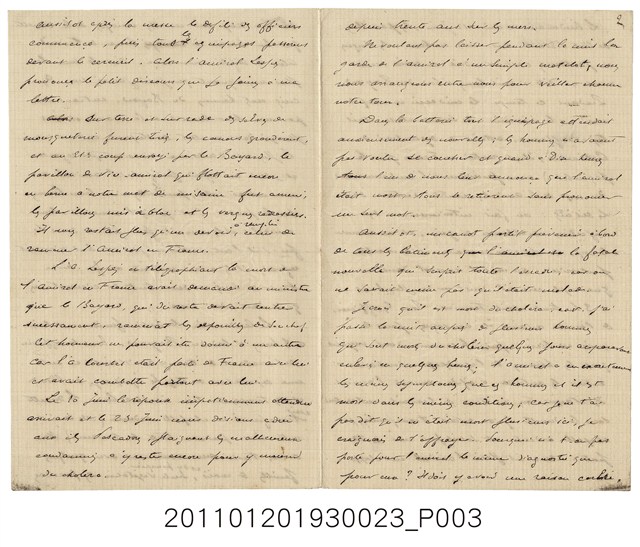 aussitôt après la messe le défilé des officiers
commença, puis tout les équipages passerent
devant le cercueil. Alors l'amiral Lespès
prononça le petit discours que je joins à ma
lettre.
Sur terre et sur rade des salves de
mousqueterie furent tirés, les canons grondèrent,
et au coup envoyé par le Bayard, le
pavillon de vice amiral qui flottait encore
en berne à notre mat de misaine fut amené,
les pavillons mis à bloc et les vergues redressées.
Il nous restait plus qu'un devoir à remplir, celui de
ramener l'amiral en France.
L'A. Lespès en télégraphiant la mort de
l'amiral en France avait demandé au ministre
que le Bayard, qui du reste devait rentrer
incessamment, ramenât les dépouilles de son chef
Cet honneur ne pouvait être donné à un autre
car l'A. Courbet était parti de France avec lui
et avait combattu partout avec lui.
Le 20 juin la réponse impatiemment attendue
arrivait et le 23 juin nous disions adieu
aux îles Pescadores, plaignant les malheureux
condamnés à y rester encore pour y mourir
du choléra.
2
depuis trente ans sur les mers.
Ne voulant pas laisser pendant la nuit la
garde de l'amiral à un simple matelot, nous
nous arrangeons entre nous pour veiller chacun
notre tour.
Dans la batterie tout l'équipage attendait
anxieusement des nouvelles; les hommes n'avaient
pas voulu se coucher et quand à dix heures
l'un de nous leur annonça que l'amiral
était mort tous se retirèrent sans prononcer
un seul mot.
Aussitôt, un canot partit prévenir à bord
de tous les bâtiments la fatale
nouvelle qui surprit toute l'escadre, car on
ne savait même pas qu'il était malade.
Je crois qu'il est mort du choléra, car j'ai
passé la nuit auprès de plusieurs hommes
qui sont morts du choléra quelques jours auparavant
enlevés en quelques heures. L'amiral a eu exactement
les mêmes symptômes que ces hommes et il est
mort dans les mêmes conditions, car je ne t'ai
pas dit qu'il en était mort plusieurs ici, je
craignais de t'effrayer. Pourquoi n'a t'on pas
porté pour l'amiral le même diagnostic que
pour eux? Il doit y avoir une raison cachée.
201101201930023_P003